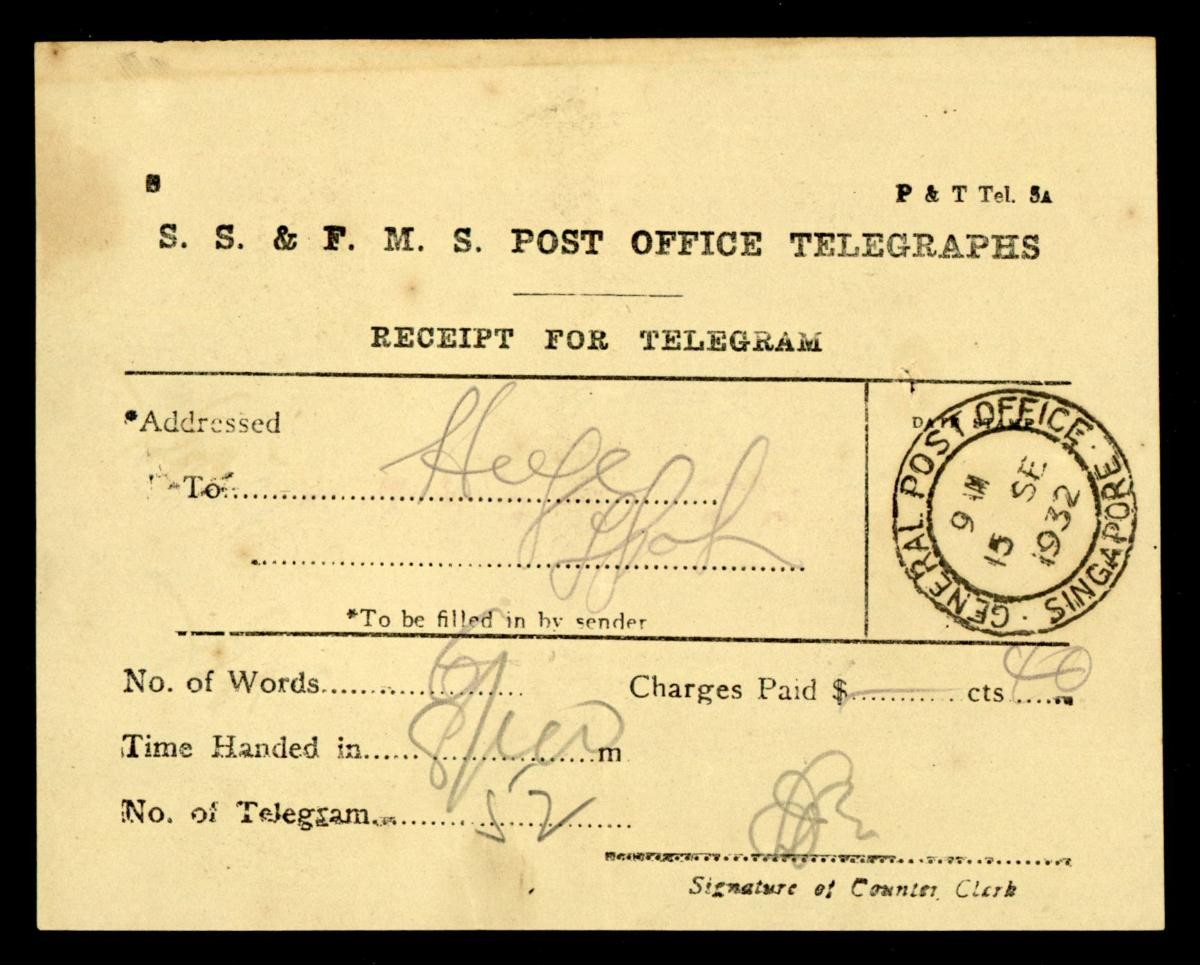 P & T Tel. 3A
S. S. & F. M. S. POST OFFICE TELEGRAPHS
RECEIPT FOR TELEGRAM
*Addressed
To
*To be filled in by sender
DATE STAMP
GENERAL POST OFFICE · SINGAPORE ·
9 AM
15 SE
1932
No. of Words
Charges Paid $ — cts 40
Time Handed in m
No. of Telegram 52
Signature of Counter Clerk